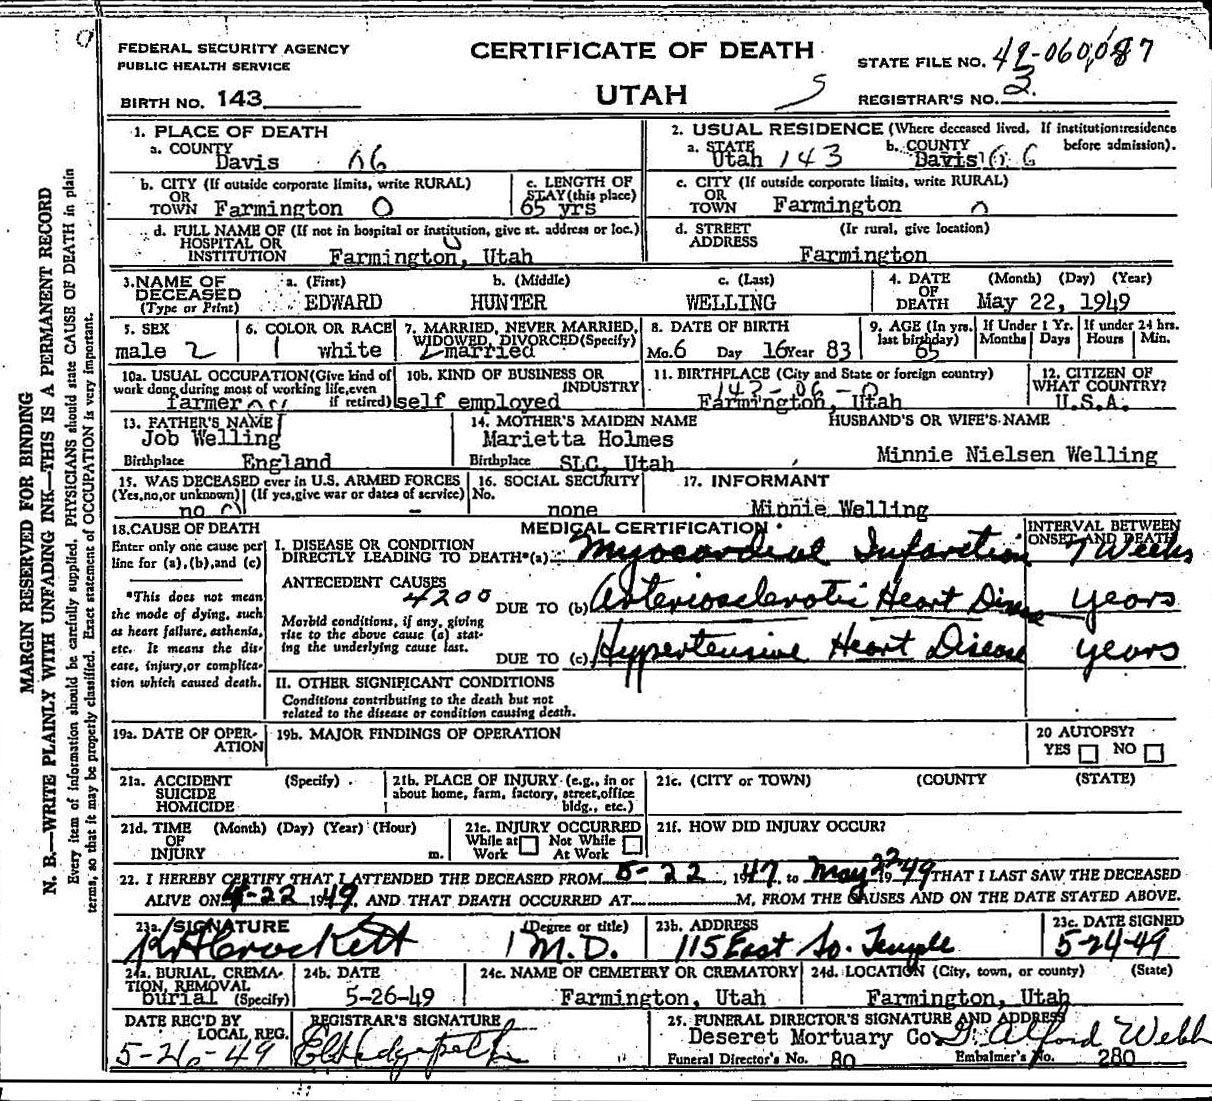 FEDERAL SECURITY AGENCY
PUBLIC HEALTH SERVICE
CERTIFICATE OF DEATH
STATE FILE NO. 49-060,087
BIRTH NO. 143
UTAH
REGISTRAR'S NO. 3
1. PLACE OF DEATH
a. COUNTY
Davis 06
2. USUAL RESIDENCE (Where deceased lived. If institution:residence before admission).
a. STATE
Utah 143
b. COUNTY
Davis
b. CITY (If outside corporate limits, write RURAL)
OR
TOWN Farmington O
c. LENGTH OF
STAY(this place)
65 yrs
c. CITY (If outside corporate limits, write RURAL)
OR
TOWN Farmington
d. FULL NAME OF (If not in hospital or institution, give st. address or loc.)
HOSPITAL OR
INSTITUTION Farmington, Utah
d. STREET (If rural, give location)
ADDRESS Farmington
3.NAME OF
DECEASED
(Type or Print)
a. (First)
EDWARD
b. (Middle)
HUNTER
c. (Last)
WELLING
4. DATE (Month) (Day) (Year)
OF
DEATH May 22, 1949
5. SEX
male 2
6. COLOR OR RACE
1 white
7. MARRIED, NEVER MARRIED,
WIDOWED, DIVORCED(Specify)
married
8. DATE OF BIRTH
Mo.6 Day 16 Year 83
9. AGE (In yrs. last birthday)
65
If Under 1 Yr.
Months Days
If under 24 hrs.
Hours Min.
10a. USUAL OCCUPATION(Give kind of
work done during most of working life,even
if retired)
farmer
10b. KIND OF BUSINESS OR
INDUSTRY
self employed
11. BIRTHPLACE (City and State or foreign country)
143-06-0
Farmington, Utah
12. CITIZEN OF
WHAT COUNTRY?
U.S.A.
13. FATHER'S NAME
Job Welling
Birthplace England
14. MOTHER'S MAIDEN NAME
Marietta Holmes
Birthplace SLC, Utah
HUSBAND'S OR WIFE'S NAME
Minnie Nielsen Welling
15. WAS DECEASED ever in U.S. ARMED FORCES
(Yes,no,or unknown) (If yes,give war or dates of service)
no -
16. SOCIAL SECURITY
No.
none
17. INFORMANT
Minnie Welling
18.CAUSE OF DEATH
Enter only one cause per
line for (a),(b),and (c)
*This does not mean
the mode of dying, such
as heart failure, asthenia,
etc. It means the dis-
ease, injury,or complica-
tion which caused death.
MEDICAL CERTIFICATION
INTERVAL BETWEEN
ONSET AND DEATH
I. DISEASE OR CONDITION
DIRECTLY LEADING TO DEATH*(a) Myocardial Infarction 7 Weeks
ANTECEDENT CAUSES
4200
DUE TO (b) Arteriosclerotic Heart Disease years
Morbid conditions, if any, giving
rise to the above cause (a) stat-
ing the underlying cause last.
DUE TO (c) Hypertensive Heart Disease years
II. OTHER SIGNIFICANT CONDITIONS
Conditions contributing to the death but not
related to the disease or condition causing death.
19a. DATE OF OPER-
ATION
19b. MAJOR FINDINGS OF OPERATION
20 AUTOPSY?
YES NO
21a. ACCIDENT (Specify)
SUICIDE
HOMICIDE
21b. PLACE OF INJURY (e.g., in or
about home, farm, factory, street,office
bldg., etc.)
21c. (CITY or TOWN) (COUNTY) (STATE)
21d. TIME (Month) (Day) (Year) (Hour)
OF
INJURY m.
21e. INJURY OCCURRED
While at Work Not While At Work
21f. HOW DID INJURY OCCUR?
22. I HEREBY CERTIFY THAT I ATTENDED THE DECEASED FROM 5-22, 1947, to May 22 1949 THAT I LAST SAW THE DECEASED
ALIVE ON 4-22 1949, AND THAT DEATH OCCURRED AT M, FROM THE CAUSES AND ON THE DATE STATED ABOVE.
23a. SIGNATURE (Degree or title)
Crockett M.D.
23b. ADDRESS
115 East So. Temple
23c. DATE SIGNED
5-24-49
24a. BURIAL, CREMA-
TION, REMOVAL
burial (Specify)
24b. DATE
5-26-49
24c. NAME OF CEMETERY OR CREMATORY
Farmington, Utah
24d. LOCATION (City, town, or county) (State)
Farmington, Utah
DATE REC'D BY
LOCAL REG.
5-26-49
REGISTRAR'S SIGNATURE
25. FUNERAL DIRECTOR'S SIGNATURE AND ADDRESS
Deseret Mortuary Co Alford Webb
Funeral Director's No. 80 Embalmer's No. 280
MARGIN RESERVED FOR BINDING
N. B.—WRITE PLAINLY WITH UNFADING INK—THIS IS A PERMANENT RECORD
Every item of information should be carefully supplied. PHYSICIANS should state CAUSE OF DEATH in plain
terms, so that it may be properly classified. Exact statement of OCCUPATION is very important.